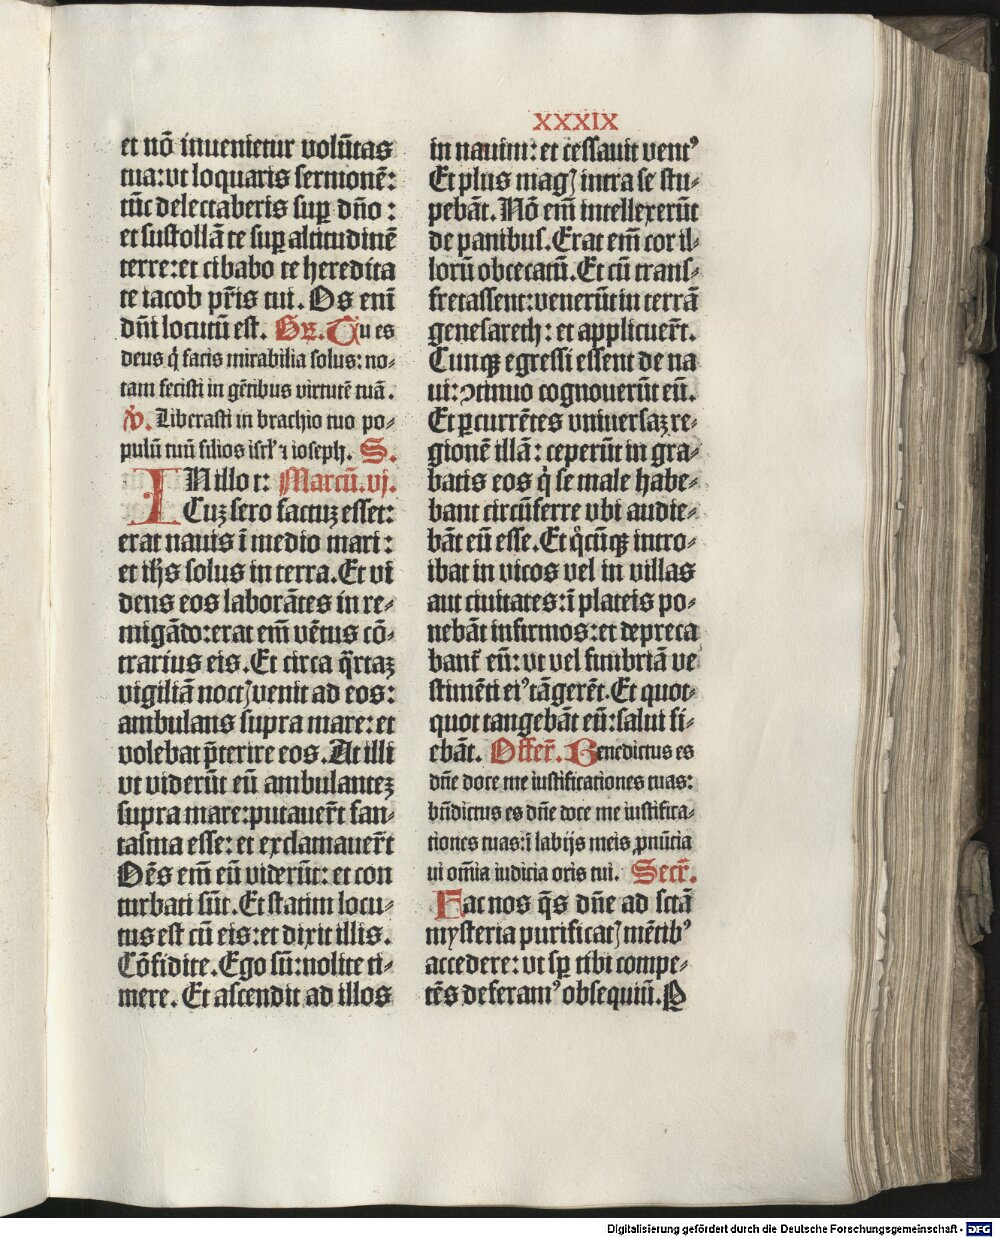 XXXIX
et nō inuenietur volūtas
tua:vt loquaris sermonē:
tūc delectaberis sup dño:
et sustollā te sup altitudinē
terre:et cibabo te heredita
te iacob pr̄is tui. Os enī
dñi locutū est. Gr̄. Tu es
deus q̇ facis mirabilia solus: no-
tam fecisti in gētibus virtutē tuā.
℣. Liberasti in brachio tuo po-
pulū tuū filios isrl' ⁊ ioseph. S.
IN illo t: Marcū.vj.
Cuꝫ sero factuꝫ esset:
erat nauis ī medio mari:
et ihs solus in terra. Et vi
dens eos laborātes in re-
migādo:erat em̄ vētus cō-
trarius eis. Et circa q̄rtaꝫ
vigiliā noctꝭ venit ad eos:
ambulans supra mare: et
volebat p̄terire eos. At illi
vt viderūt eū ambulanteꝫ
supra mare:putauer̄t fan-
tasma esse: et exclamauer̄t
Oēs em̄ eū viderūt: et con
turbati sūt. Et statim locu-
tus est cū eis:et dixit illis.
Cōfidite. Ego sū:nolite ti-
mere. Et ascendit ad illos
in nauim: et cessauit ventꝰ
Et plus magꝭ intra se stu-
pebāt. Nō em̄ intellexerūt
de panibus. Erat em̄ cor il-
lorū obcecatū. Et cū trans-
fretassent:venerūt in terrā
genesareth: et applicuer̄t.
Cunqꝫ egressi essent de na
ui:ꝯtinuo cognouerūt eū.
Et ꝑcurrētes vniuersaꝫ re-
gionē illā: ceperūt in gra-
batis eos q̇ se male habe-
bant circūferre vbi audie-
bāt eū esse. Et q̊cūqꝫ intro-
ibat in vicos vel in villas
aut ciuitates:ī plateis po-
nebāt infirmos:et depreca
bant̄ eū: vt vel fimbriā ve
stimēti eiꝰ tāgerēt. Et quot-
quot tangebāt eū:salui fi-
ebāt. Offer̄. Benedictus es
dñe doce me iustificationes tuas:
bñdictus es dñe doce me iustifica-
tiones tuas:ī labijs meis ꝓnūcia
ui om̄ia iudicia oris tui. Secr̄.
Fac nos q̄s dñe ad sctā
mysteria purificatꝭ mētibꝰ
accedere: vt sꝑ tibi compe-
tēs deferamꝰ obsequiū. P
Digitalisierung gefördert durch die Deutsche Forschungsgemeinschaft - DFG